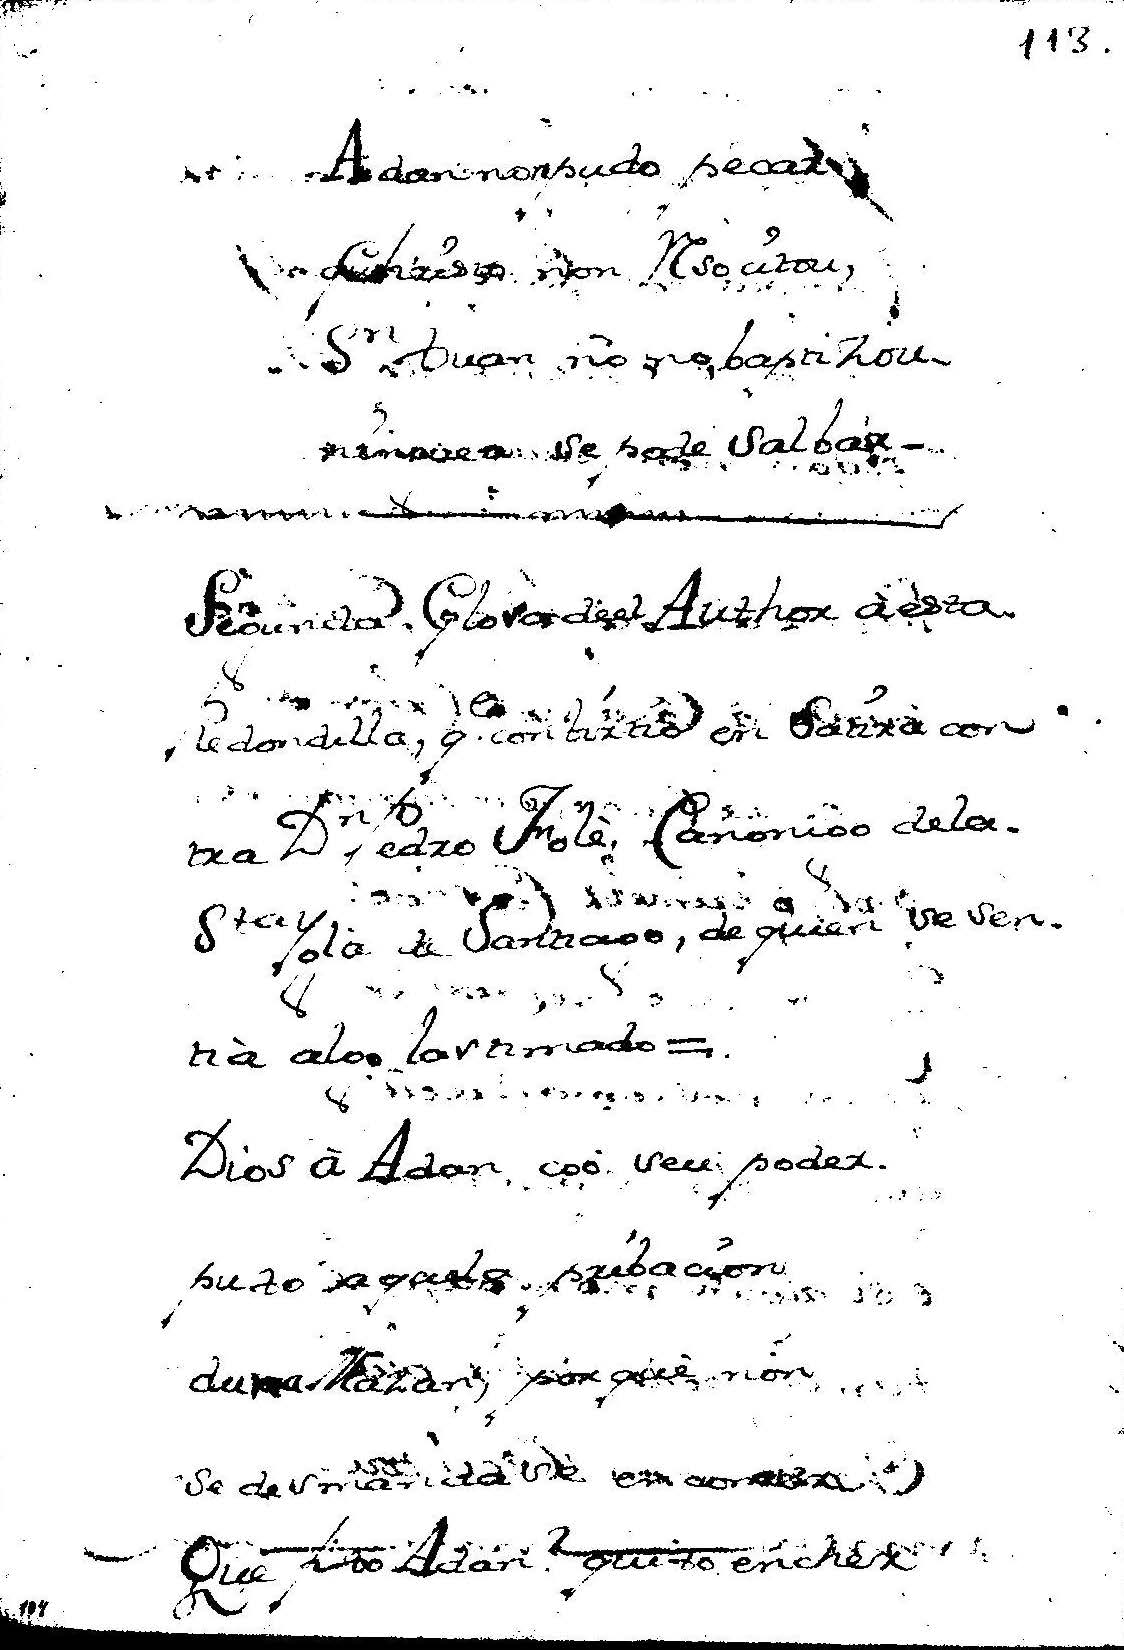 113.
Adan non pudo pecar
Christo non Rsocitou,
Sn Juan nō no baptizou
ninguen se pode salbar
Segunda Glosa del Author à esta
Redondilla, q. conbirtiò en Satira con
tra Dn Pedro Jnolè, Canonigo dela
Sta Ygla de Santiago, de quien se sen
tia algo lastimado =
Dios à Adan, coò seu poder
puzo aquela pribacion
duna Mazan, porque non
se desmandase en comer
Que fizo Adan? quizo encher
104